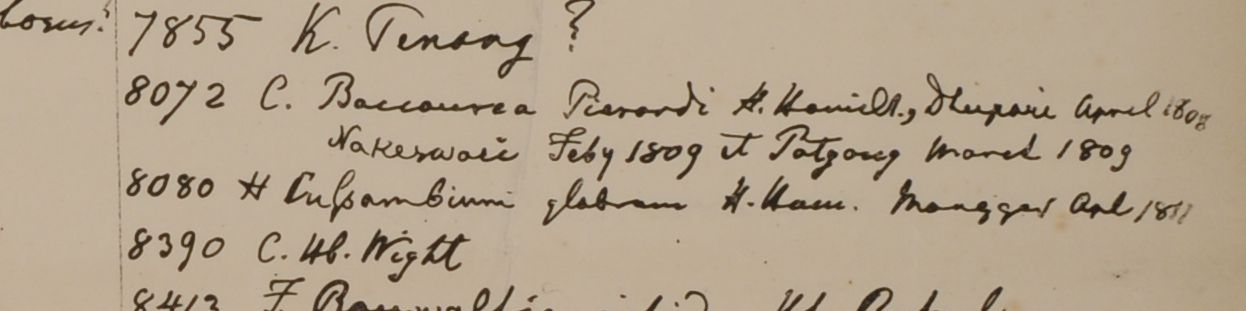 7855 K. Tenang ?
8072 C. Baccaurea Pierardi H. Hamilt., Dhupoie April 1808
Nakeswari Feby 1809 et Patgong March 1809
8080 H Cuſsambium glabrum H. Ham. Mongger Apl 1811
8390 C. Hb. Wight
8413 F